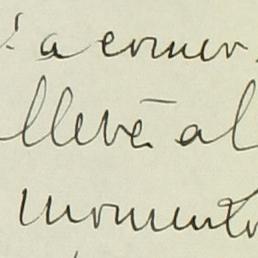 a comer
llevé al
momento